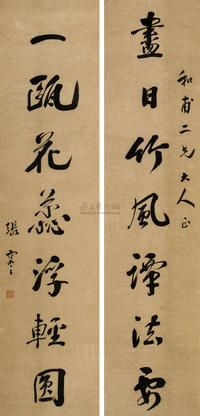 和甫二兄大人正
畫日竹風譚法要
一甌花蕊浮輕圓
張